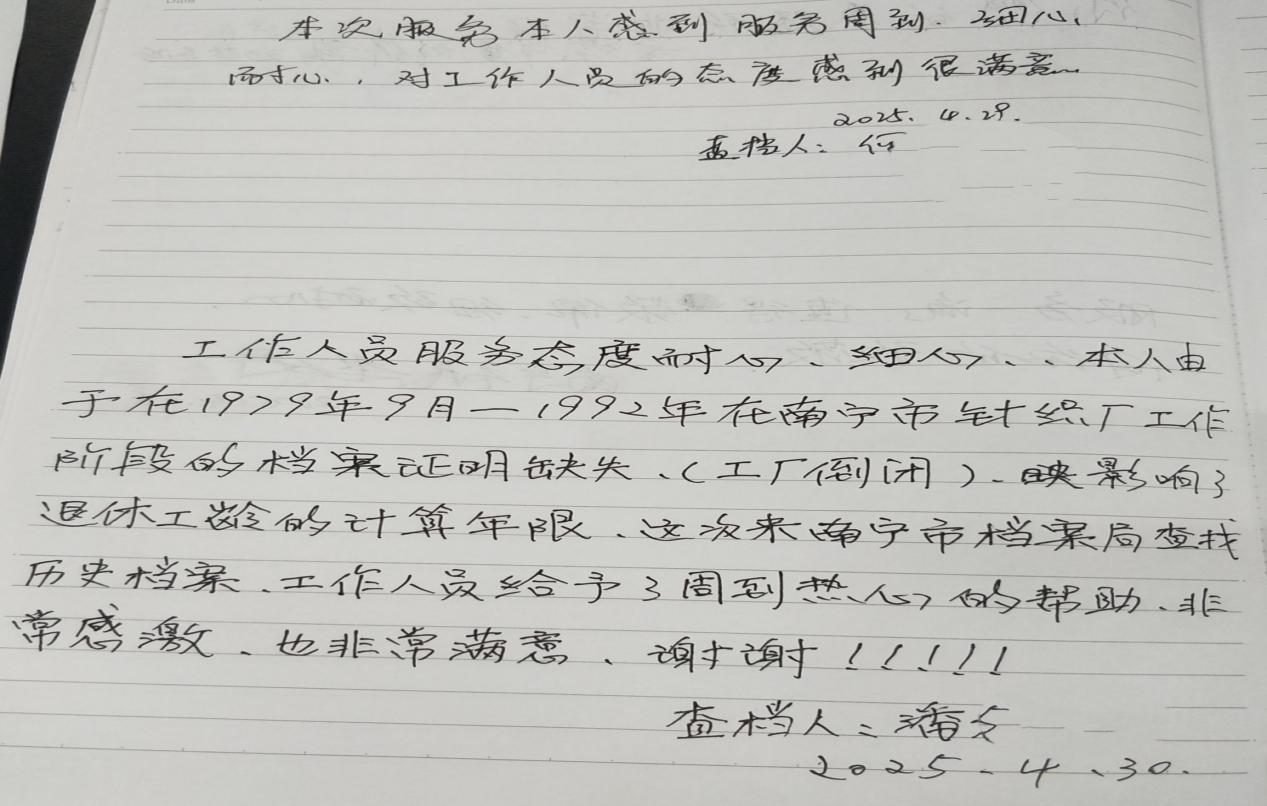 本次服务本人感到服务周到、细心、
耐心，对工作人员的态度感到很满意
2025.4.29.
查档人：何
工作人员服务态度耐心、细心、、本人由
于在1979年9月—1992年在南宁市针织厂工作
阶段的档案证明缺失、(工厂倒闭)、影响了
退休工龄的计算年限、这次来南宁市档案局查找
历史档案、工作人员给予了周到热心的帮助、非
常感激、也非常满意、谢谢!!!!!
查档人：潘
2025、4、30.